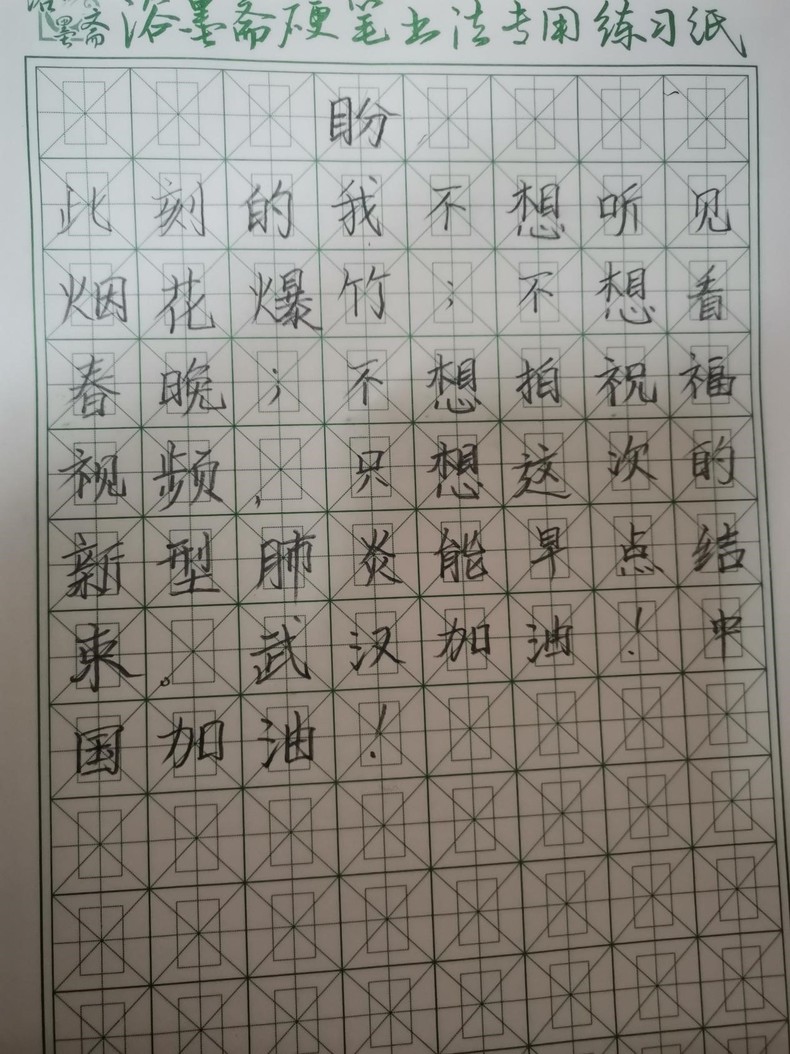 浴墨斋硬笔书法专用练习纸
盼
此刻的我不想听见
烟花爆竹;不想看
春晚;不想拍祝福
视频,只想这次的
新型肺炎能早点结
束。武汉加油!中
国加油!